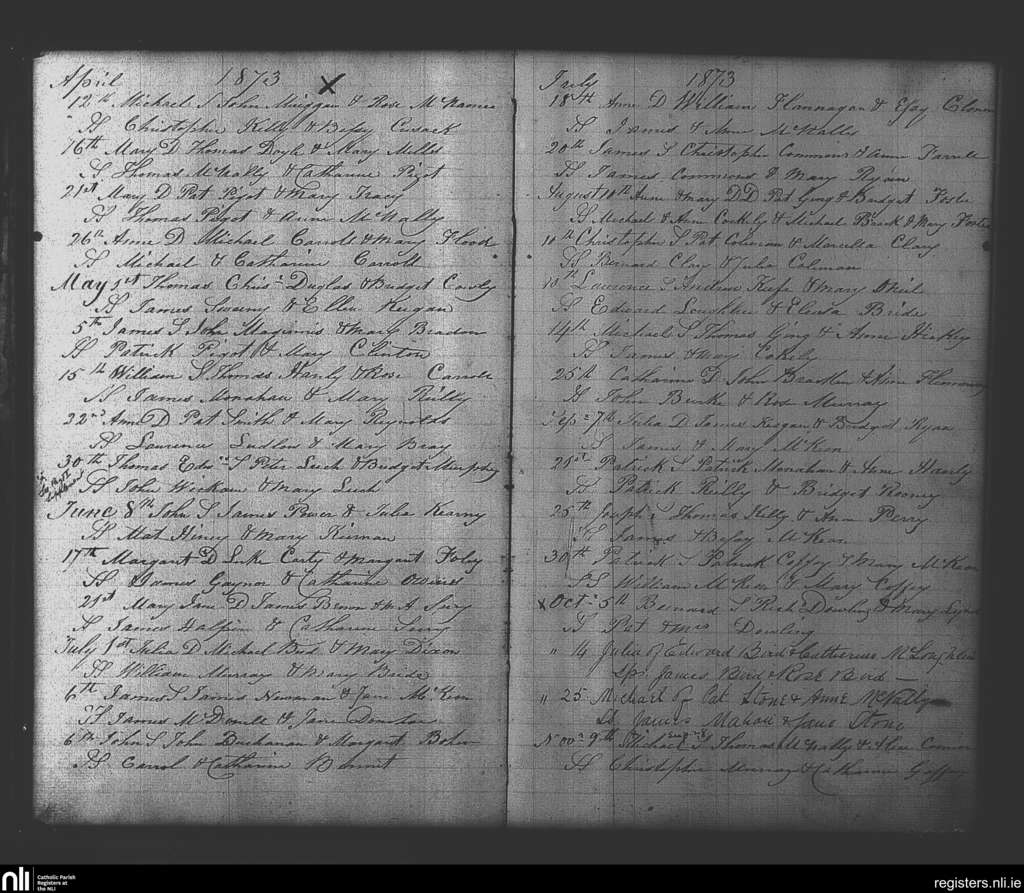 April 1873 X
12th Michael S John Muiggan & Rose McNamee
SS Christopher Kelly & Bessy Cusack
16th Mary D Thomas Doyle & Mary Mills
SS Thomas McNally & Catharine Pigot
21st Mary D Pat Pigot & Mary Tracy
SS Thomas Pigot & Anne McNally
26th Anne D Michael Carroll & Mary Flood
SS Michael & Catharine Carroll
May 1st Thomas Chris Duglas & Budget
SS James Sweeny & Ellen Keegan
5th James S John Maginnis & Mary Bradon
SS Patrick Pigot & Mary Clinton
15th William S Thomas Hanly & Rose Carroll
SS James Monahan & Mary Reilly
22nd Ann D Pat Smith & Mary Reynolds
SS Laurence Ludlow & Mary Bray
30th Thomas S Peter Leech & Budget Murphy
SS John & Mary Leech
June 8th John S James Power & Julia Kearny
SS Mat Hiney & Mary Kiernan
17th Margaret D Luke Carty & Margaret Foley
SS James Gaynor & Catharine
21st Mary Jane D James
SS James Halpin & Catharine
July 1st Julia D Michael Bird & Mary Dixon
SS William Murray & Mary Bride
6th James S James Newman & Jane McKeon
SS James McDonell & Jane Donelan
6th John S John Buchanan & Margaret
SS Carrol & Catharine Bennit
July 1873
18th Anne D William Flannagan &
SS James & Anne McNalls
20th James S Christopher Commons & Ann Farrell
SS James Commons & Mary Ryan
August 10th Anne & Mary DD Pat Ging & Budget Foste
SS Michael & Anne & Michael & Mary Foster
10th Christopher S Pat Coleman & Marcella Clary
SS Bernard Clary & Julia Coleman
10th Laurence S Andrew Keefe & Mary Neil
SS Edward & Bride
14th Michael S Thomas Ging & Anne
SS James & Mary
25th Catharine D John & Anne Flemming
SS John Burke & Rose Murray
Sep 7th Julia D James Keegan & Bridget Ryan
SS James & Mary McKeon
21st Patrick S Patrick Monahan & Anne Hanly
SS Patrick Reilly & Bridget Rooney
25th Joseph S Thomas Kelly & Ann Perry
SS James & Bessy McKeon
30th Patrick S Patrick Coffey & Mary McKeon
SS William McKeon & Mary Coffey
X Oct 5th Bernard S Rich Dowling & Mary
SS Pat & Mrs Dowling
" 14 Julia of Edward Bird & Catherine McLoughlin
Sps. James Bird & Rose Bird —
" 25 Michael of Pat Stone & Anne McNally
SS James Mahon & Jane Stone
Nov 9th Michael S Thomas McNally & Alice Connor
SS Christopher Murray & Catharine Gaffney
nli Catholic Parish
Registers at
the NLI
registers.nli.ie